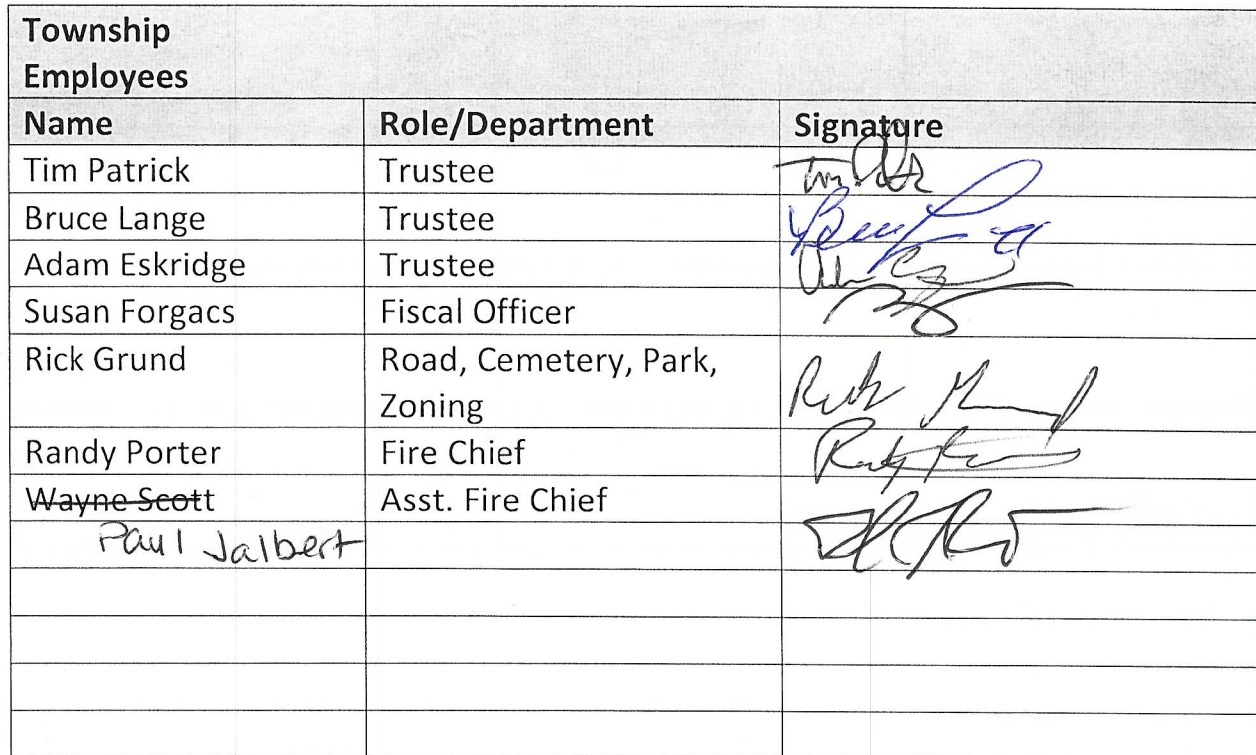 Township
Employees
Name Role/Department Signature
Tim Patrick Trustee
Bruce Lange Trustee
Adam Eskridge Trustee
Susan Forgacs Fiscal Officer
Rick Grund Road, Cemetery, Park,
Zoning
Randy Porter Fire Chief
Wayne Scott Asst. Fire Chief
Paul Jalbert